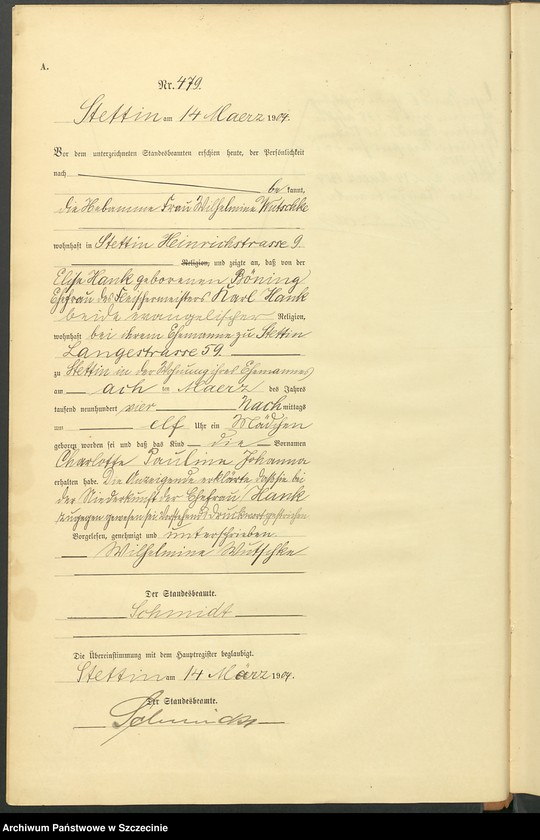 A.
Nr. 479.
Stettin am 14 Maerz 1904.
Vor dem unterzeichneten Standesbeamten erschien heute, der Persönlichkeit
nach
be kannt,
die Hebamme Frau Wilhelmine Wutschke
wohnhaft in Stettin Heinrichstrasse 9.
Religion, und zeigte an, daß von der
Elise Hank geborenen Böning
Ehefrau des Fleischermeisters Karl Hank
beide evangelischer Religion,
wohnhaft bei ihrem Ehemanne zu Stettin
Langestrasse 59.
zu Stettin in der Wohnung ihres Ehemannes
am ach ten Maerz des Jahres
tausend neunhundert vier Nach mittags
um elf Uhr ein Mädchen
geboren worden sei und daß das Kind die Vornamen
Charlotte Pauline Johanna
erhalten habe. Die Anzeigende erklärte, dass sie bei
der Niederkunft der Ehefrau Hank
zugegen gewesen sei Vorstehend 1 Druckwort gestrichen
Vorgelesen, genehmigt und unterschrieben
Wilhelmine Wutschke
Der Standesbeamte.
Schmidt
Die Übereinstimmung mit dem Hauptregister beglaubigt.
Stettin am 14 März 1904.
Der Standesbeamte.
Schmidt
Archiwum Państwowe w Szczecinie